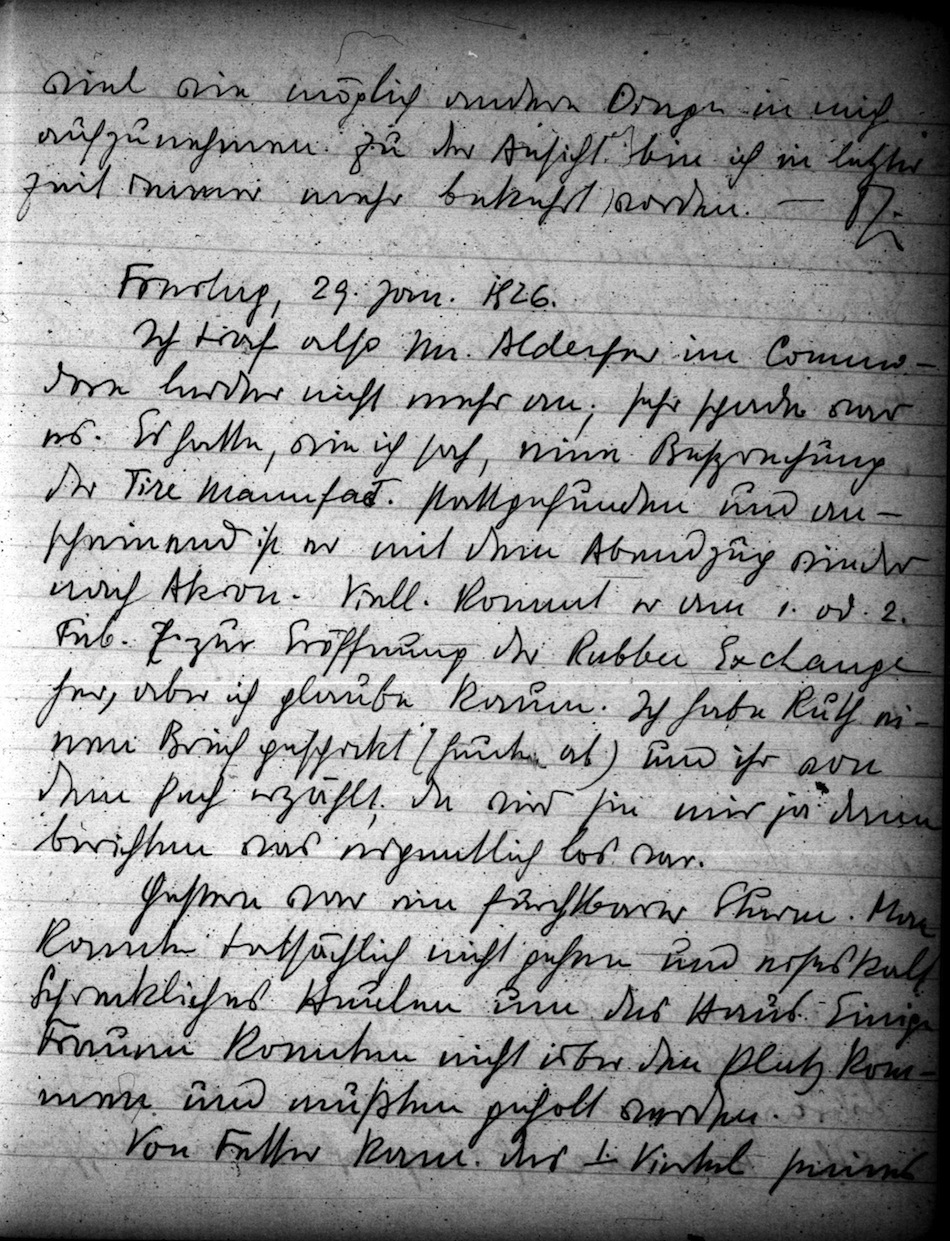 viel wie möglich andere Dinge in mich
aufzunehmen. Zu der Ansicht bin ich in letzter
Zeit immer mehr bekehrt worden. —
Freitag, 29. Jan. 1926.
Ich traf also Mr. Alderfer im Commo-
dore leider nicht mehr an; sehr schade war
es. Es hatte, wie ich sah, eine Besprechung
der Tire Manufact. stattgefunden und an-
scheinend ist er mit dem Abendzug wieder
nach Akron. Viell. kommt er am 1. od. 2.
Feb. zur Eröffnung der Rubber Exchange
her, aber ich glaube kaum. Ich habe Ruth ei-
nen Brief geschickt (heute ab) und ihr von
dem Pech erzählt, da wird sie mir ja dann
berichten was eigentlich los war.
Gestern war ein furchtbarer Sturm. Man
konnte tatsächlich nicht gehen und eiseskalt.
Schreckliches Heulen um das Haus. Einige
Frauen konnten nicht über den Platz kom-
men und mußten geholt werden.
Von Vetter kam das 1. Viertel seines